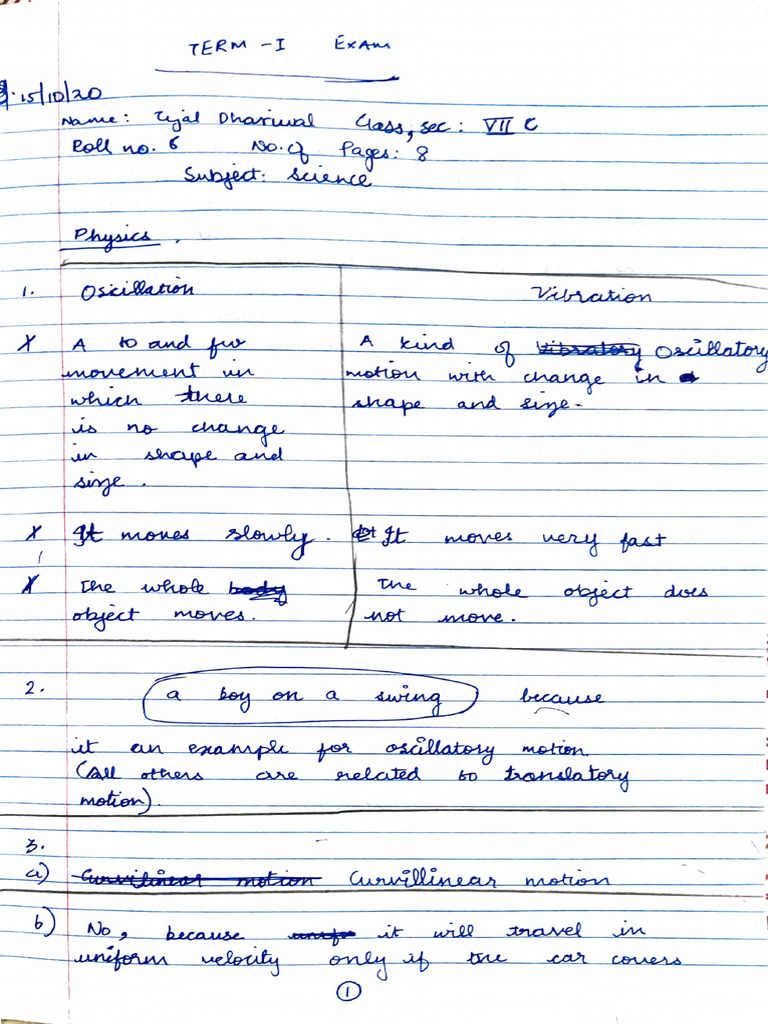 TERM - I EXAM
15/10/20
Name: Tejal Dhariwal Class, sec: VII C
Roll no. 6 No. of Pages: 8
Subject: Science
Physics.
1. Oscillation Vibration
x A to and fur A kind of vibratory Oscillatory
movement in motion with change in
which there shape and size.
is no change
in shape and
size.
x It moves slowly. It moves very fast
x The whole body The whole object does
object moves. not move.
2. a boy on a swing because
it an example for oscillatory motion
(All others are related to translatory
motion).
3.
a) Curvilinear motion Curvillinear motion
b) No, because it will travel in
uniform velocity only if the car covers
1